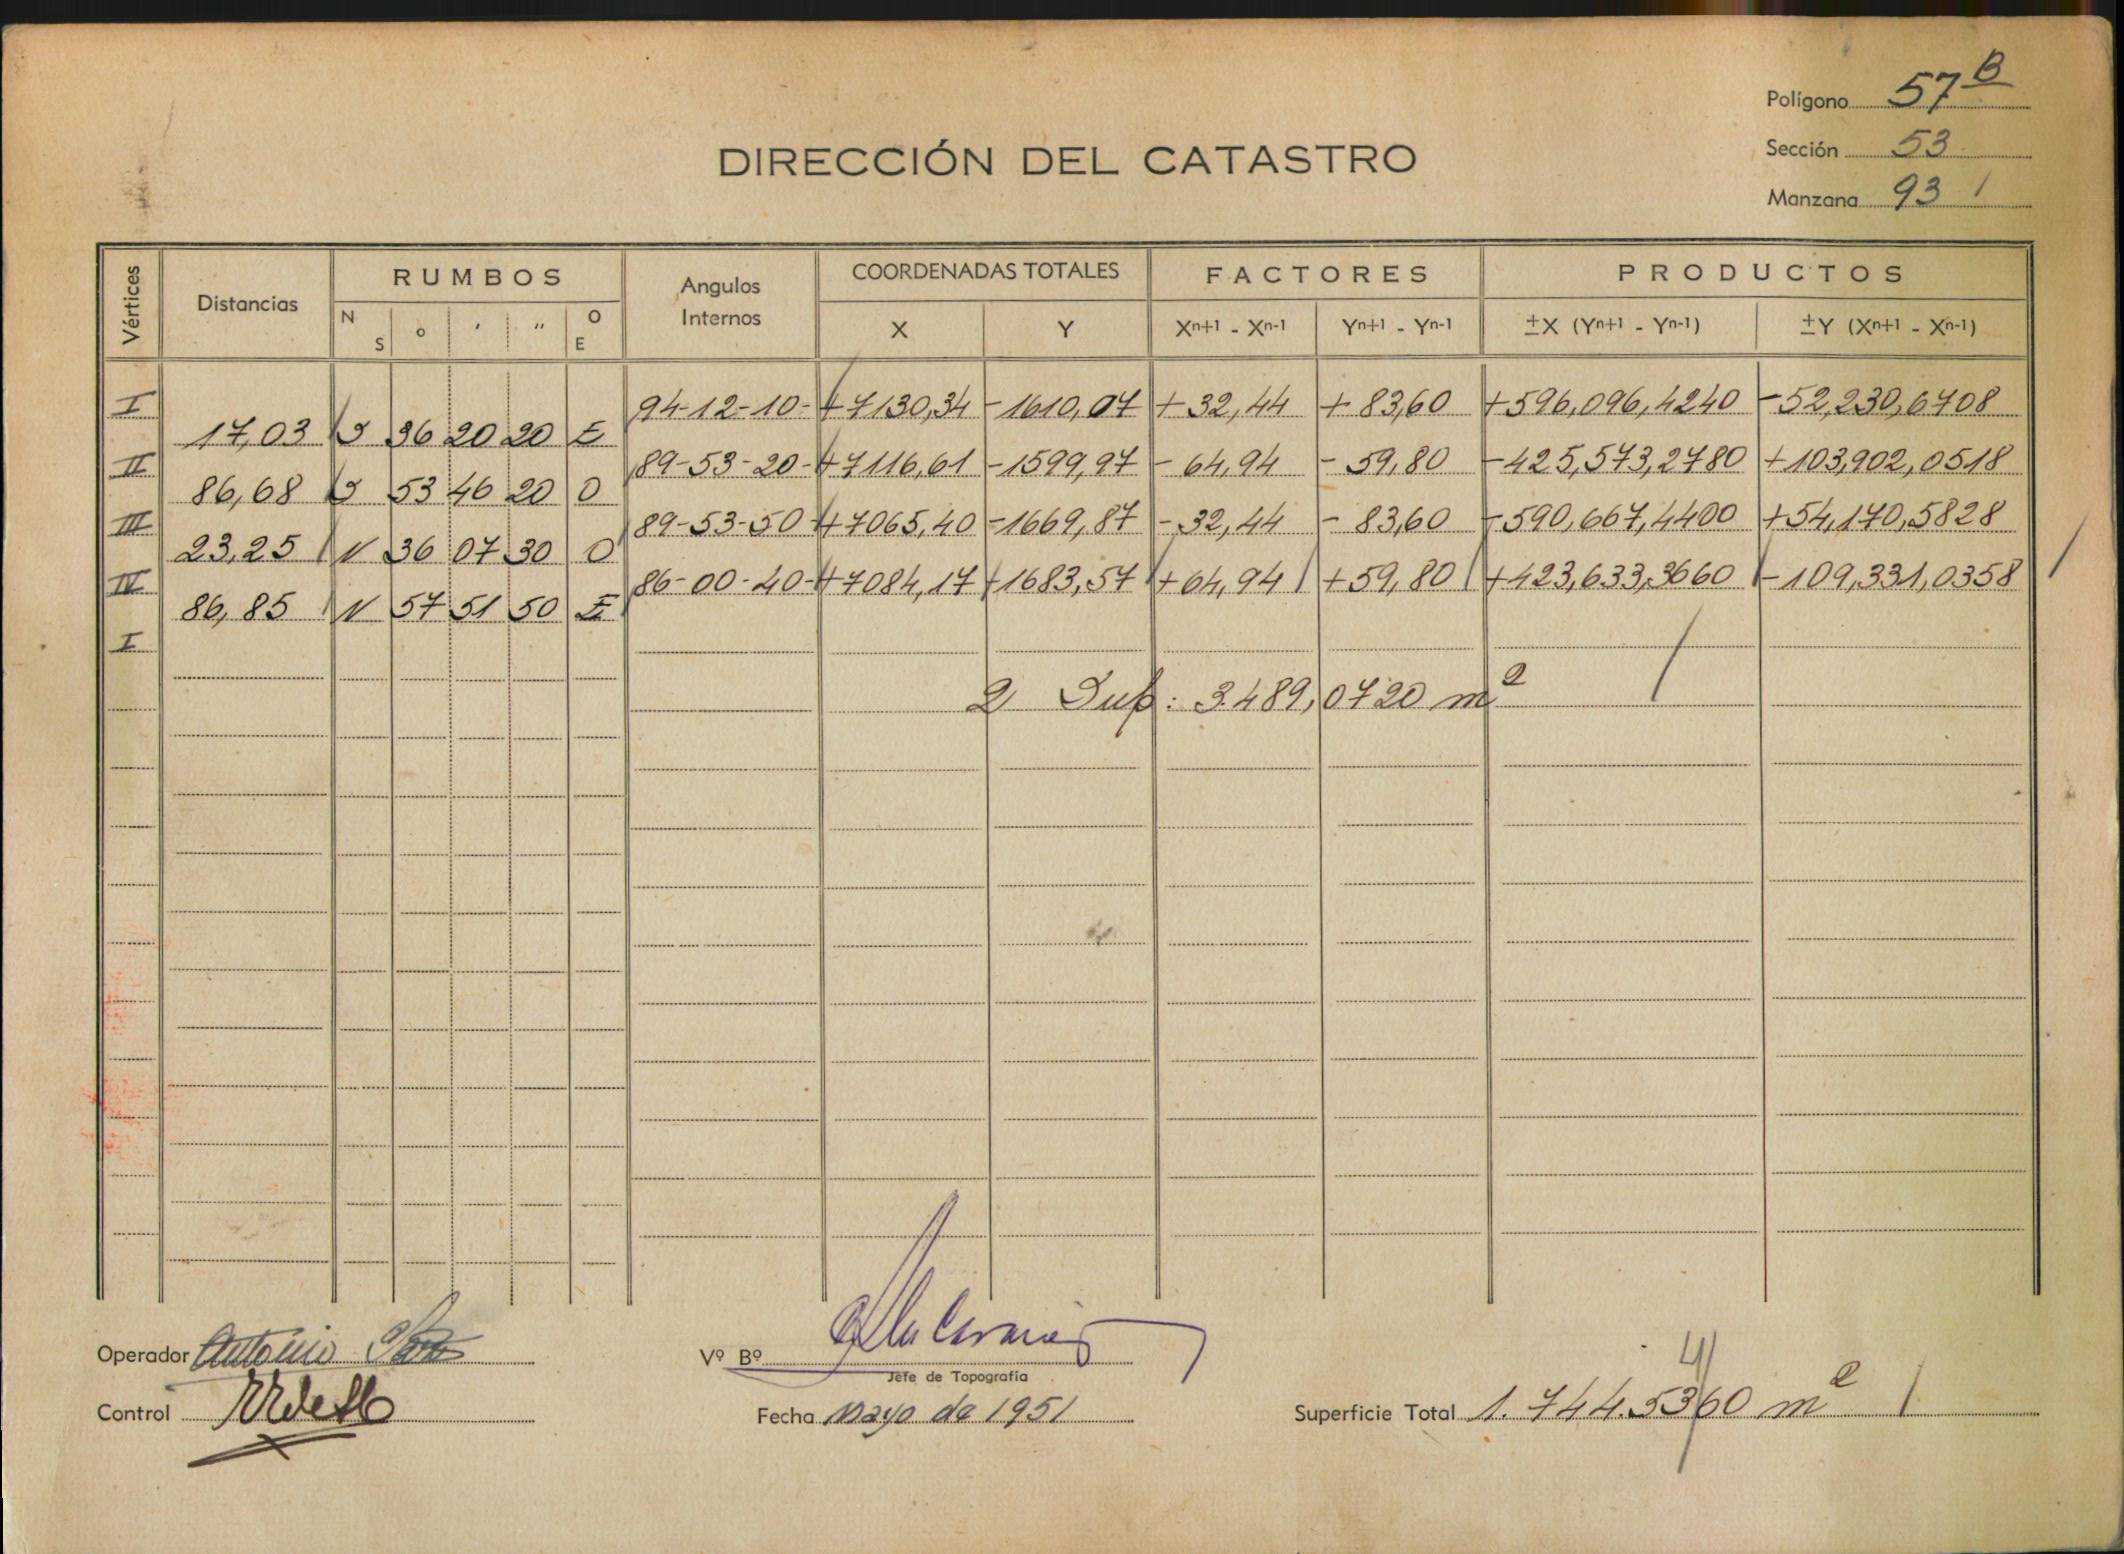 Polígono 57 B
Sección 53
Manzana 93
DIRECCIÓN DEL CATASTRO
Vértices
Distancias
RUMBOS
N S o ' " O E
Angulos Internos
COORDENADAS TOTALES
X Y
FACTORES
Xn+1 - Xn-1 Yn+1 - Yn-1
PRODUCTOS
±X (Yn+1 - Yn-1) ±Y (Xn+1 - Xn-1)
I 94-12-10- +7130,34 -1610,07 +32,44 +83,60 +596,096,4240 -52,230,6708
17,03 S 36 20 20 E
II 89-53-20- +7116,61 -1599,97 -64,94 -59,80 -425,573,2780 +103,902,0518
86,68 S 53 46 20 O
III 89-53-50- +7065,40 -1669,87 -32,44 -83,60 -590,667,4400 +54,170,5828
23,25 N 36 07 30 O
IV 86-00-40- +7084,17 -1683,57 +64,94 +59,80 +423,633,3660 -109,331,0358
86,85 N 57 51 50 E
I
2 Sup: 3.489,0720 m2
Operador Antonio
Vº Bº
Jefe de Topografía
Control
Fecha mayo de 1951
Superficie Total 1.744.5360 m2